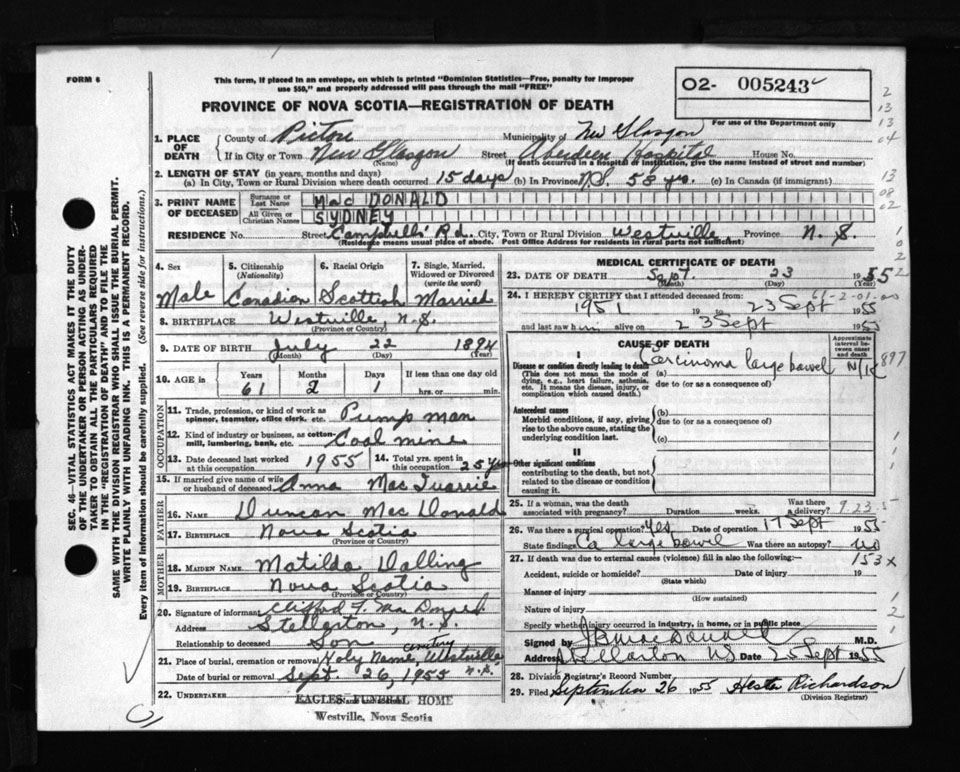 FORM 6
This form, if placed in an envelope, on which is printed "Dominion Statistics—Free, penalty for improper
use $50," and properly addressed will pass through the mail "FREE"
02- 005243
For use of the Department only
PROVINCE OF NOVA SCOTIA—REGISTRATION OF DEATH
SEC. 46—VITAL STATISTICS ACT MAKES IT THE DUTY
OF THE UNDERTAKER OR PERSON ACTING AS UNDER-
TAKER TO OBTAIN ALL THE PARTICULARS REQUIRED
IN THE "REGISTRATION OF DEATH" AND TO FILE THE
SAME WITH THE DIVISION REGISTRAR WHO SHALL ISSUE THE BURIAL PERMIT.
WRITE PLAINLY WITH UNFADING INK. THIS IS A PERMANENT RECORD.
Every item of information should be carefully supplied. (See reverse side for instructions.)
1. PLACE OF DEATH County of Pictou Municipality of New Glasgow
If in City or Town New Glasgow (Name) Street Aberdeen Hospital House No.
(If death occurred in a hospital or institution, give the name instead of street and number)
2. LENGTH OF STAY (in years, months and days)
(a) In City, Town or Rural Division where death occurred 15 days (b) In Province N.S. 58 yrs. (c) In Canada (if immigrant)
3. PRINT NAME OF DECEASED Surname or Last Name MacDONALD
All Given or Christian Names SYDNEY
RESIDENCE No. Street Campbells' Rd. City, Town or Rural Division Westville Province N.S.
(Residence means usual place of abode. Post Office Address for residents in rural parts not sufficient)
4. Sex Male
5. Citizenship (Nationality) Canadian
6. Racial Origin Scottish
7. Single, Married, Widowed or Divorced (write the word) Married
8. BIRTHPLACE Westville, N.S.
(Province or Country)
9. DATE OF BIRTH July 22 1894
(Month) (Day) (Year)
10. AGE in Years 61 Months 2 Days 1 If less than one day hrs. or min.
OCCUPATION
11. Trade, profession, or kind of work as spinner, teamster, office clerk, etc. Pump man
12. Kind of industry or business, as cotton-mill, lumbering, bank, etc. Coal mine
13. Date deceased last worked at this occupation 1955 14. Total yrs. spent in this occupation 25 yrs
15. If married give name of wife or husband of deceased Anna MacQuarrie
FATHER
16. NAME Duncan MacDonald
17. BIRTHPLACE Nova Scotia
(Province or Country)
MOTHER
18. MAIDEN NAME Matilda Dalling
19. BIRTHPLACE Nova Scotia
(Province or Country)
20. Signature of informant Clifford F. MacDonald
Address Stellarton, N.S.
Relationship to deceased Son
21. Place of burial, cremation or removal Holy Name Cemetery, Westville N.S.
Date of burial or removal Sept. 26, 1955
22. UNDERTAKER EAGLES FUNERAL HOME
Westville, Nova Scotia
MEDICAL CERTIFICATE OF DEATH
23. DATE OF DEATH Sept. 23 1955
(Month) (Day) (Year)
24. I HEREBY CERTIFY that I attended deceased from:
1951 to 23 Sept 1955
and last saw him alive on 23 Sept 1955
CAUSE OF DEATH
Approximate interval between onset and death
I
Disease or condition directly leading to death
(This does not mean the mode of dying, e.g., heart failure, asthenia, etc. It means the disease, injury, or complication which caused death.)
(a) Carcinoma large bowel N/K
due to (or as a consequence of)
Antecedent causes
Morbid conditions, if any, giving rise to the above cause, stating the underlying condition last.
(b)
due to (or as a consequence of)
(c)
II
Other significant conditions
contributing to the death, but not related to the disease or condition causing it.
25. If a woman, was the death associated with pregnancy? Duration weeks. Was there a delivery?
26. Was there a surgical operation? Yes Date of operation 17 Sept 1955
State findings Ca large bowel Was there an autopsy? No
153X
27. If death was due to external causes (violence) fill in also the following:—
Accident, suicide or homicide? (State which) Date of injury 19
Manner of injury (How sustained)
Nature of injury
Specify whether injury occurred in industry, in home, or in public place
Signed by M.D.
Address Stellarton NS Date 25 Sept 1955
28. Division Registrar's Record Number
29. Filed September 26 1955 Hester Richardson
(Division Registrar)